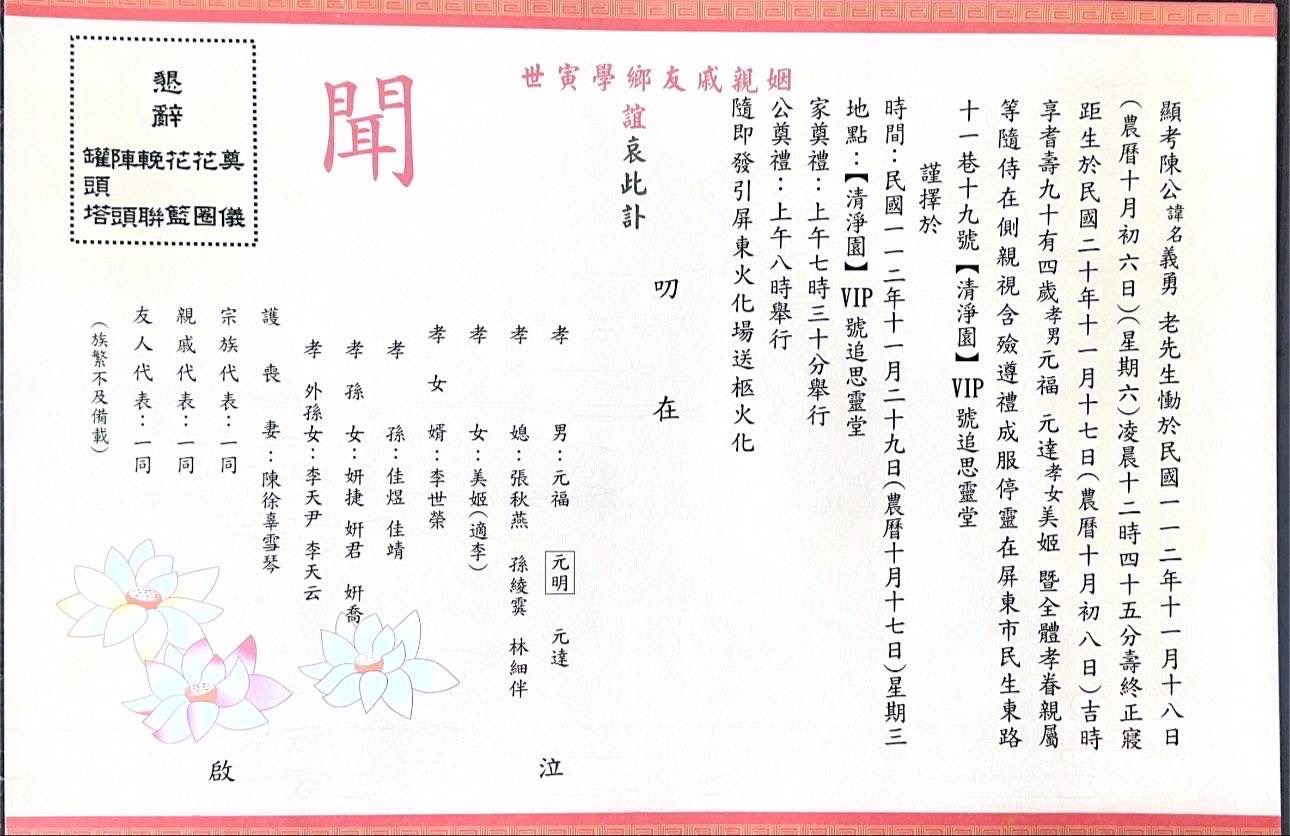 顯考陳公諱名義勇 老先生慟於民國一一二年十一月十八日
(農曆十月初六日)(星期六)凌晨十二時四十五分壽終正寢
距生於民國二十年十一月十七日(農曆十月初八日)吉時
享耆壽九十有四歲孝男元福 元達孝女美姬 暨全體孝眷親屬
等隨侍在側親視含殮遵禮成服停靈在屏東市民生東路
十一巷十九號【清淨園】VIP 號追思靈堂
謹擇於
時間:民國一一二年十一月二十九日(農曆十月十七日)星期三
地點:【清淨園】VIP 號追思靈堂
家奠禮:上午七時三十分舉行
公奠禮:上午八時舉行
隨即發引屏東火化場送柩火化
叨 在
姻親戚友鄉學寅世
誼哀此訃
聞
孝 男:元福 元明 元達
孝 媳:張秋燕 孫綾霙 林細伴
孝 女:美姬(適李)
孝 女 婿:李世榮
孝 孫:佳煜 佳靖
孝 孫 女:妍捷 妍君 妍喬
孝 外孫女:李天尹 李天云
護 喪 妻:陳徐辜雪琴
宗族代表:一同
親戚代表:一同
友人代表:一同
(族繁不及備載)
泣 啟
懇辭
奠儀
花圈
花籃
輓聯
陣頭
罐頭塔